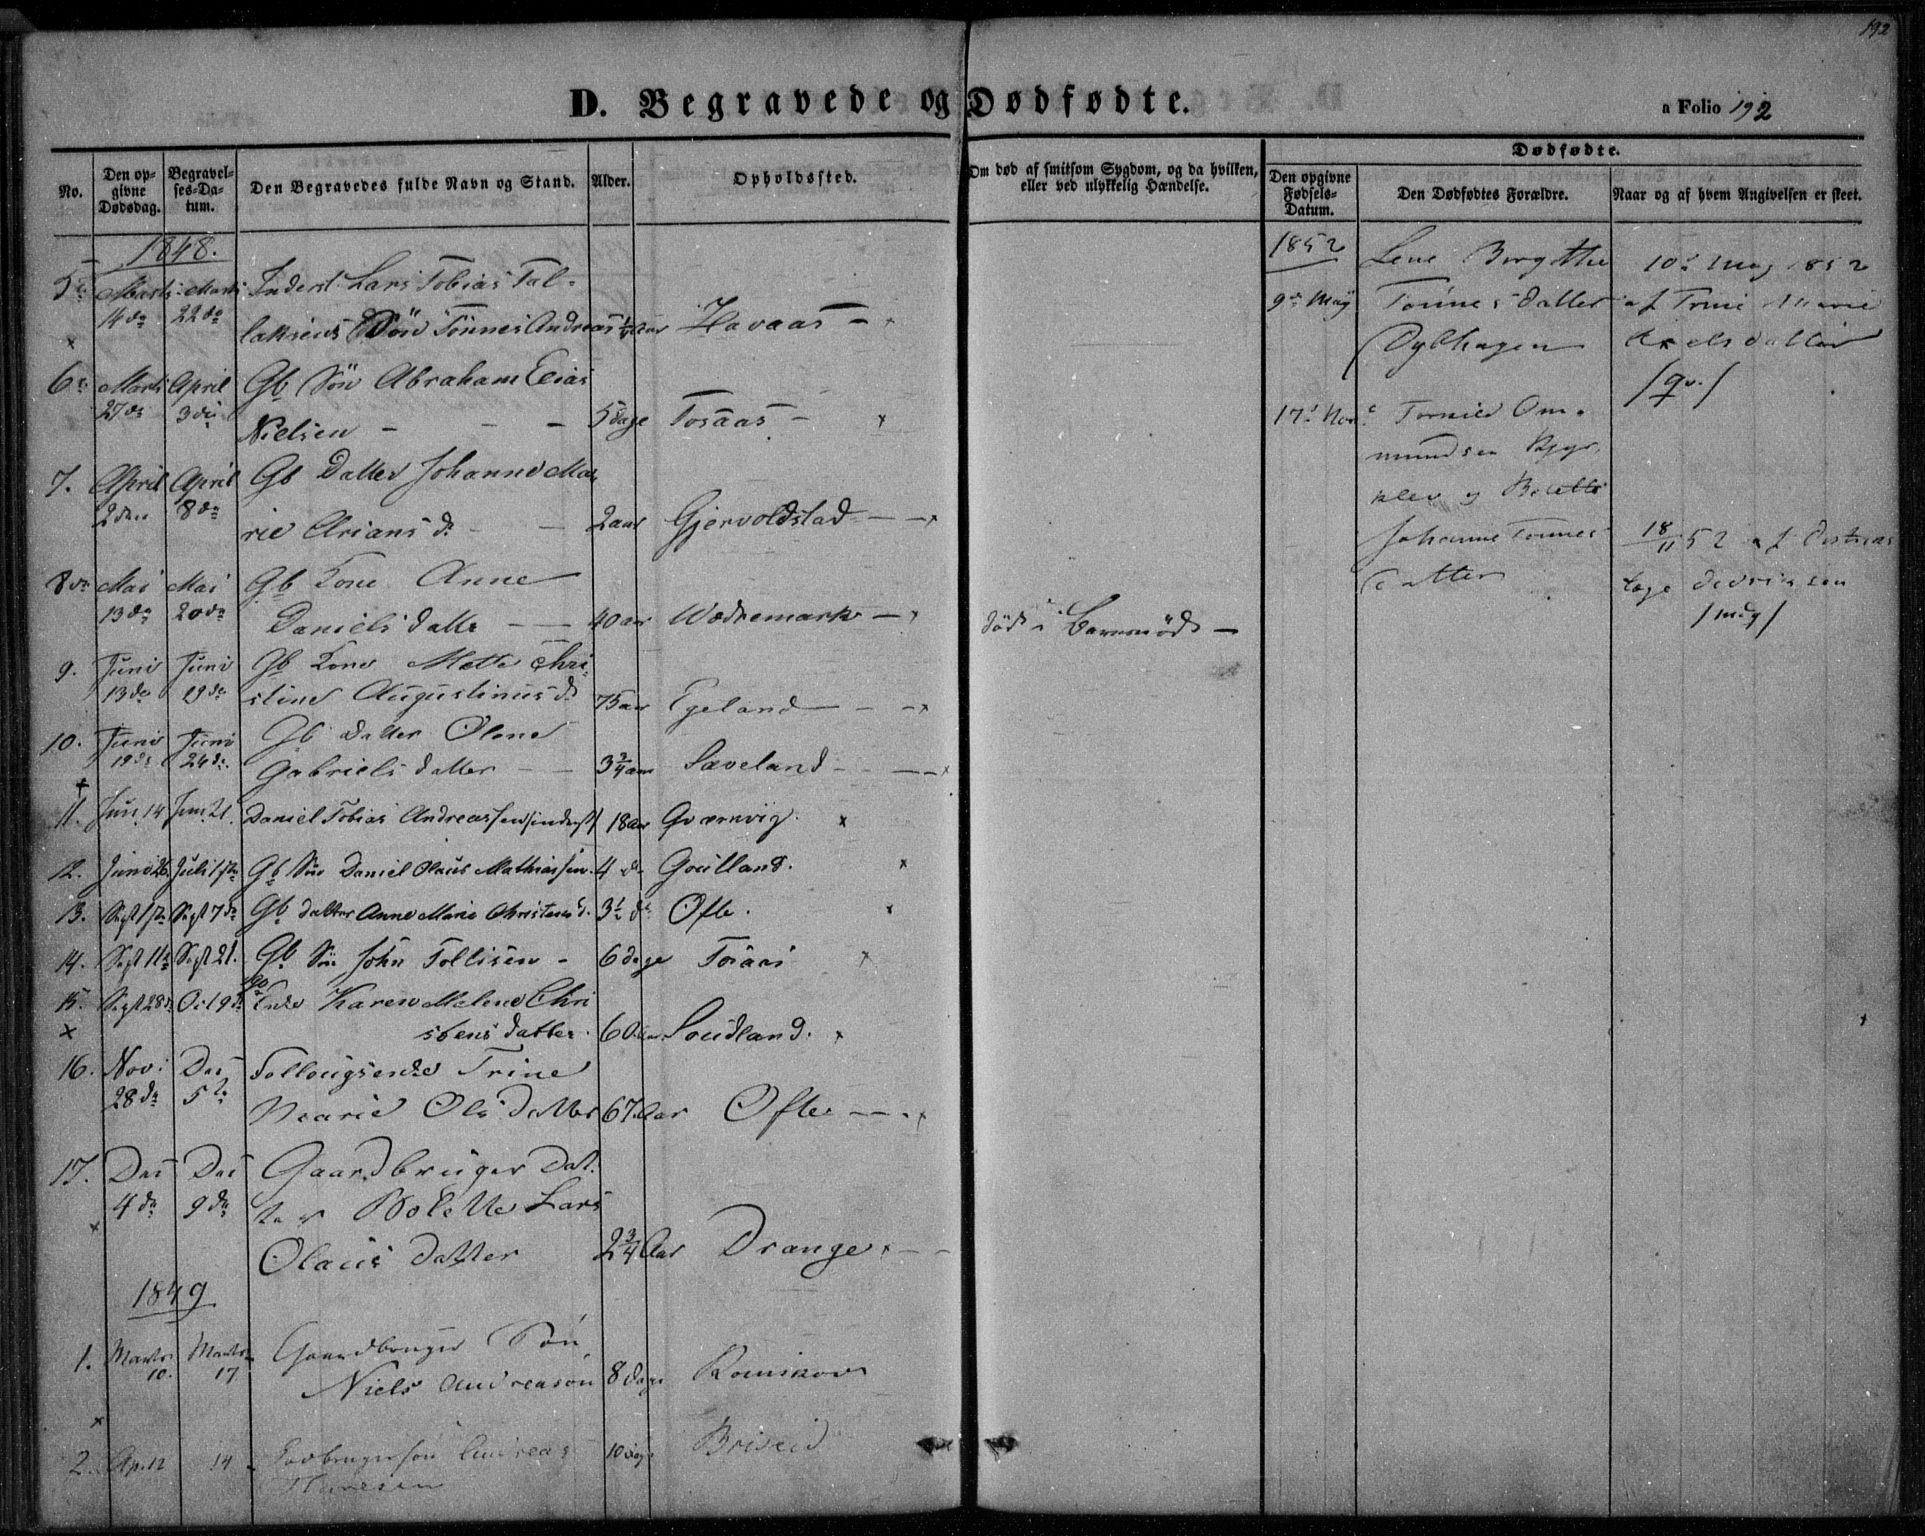 192
D. Begravede og Dødfødte.
a Folio 192
No.
Den op-
givne
Dødsdag.
Begravel-
ses-Da-
tum.
Den Begravedes fulde Navn og Stand.
Alder.
Opholdssted.
Om død af smitsom Sygdom, og da hvilken,
eller ved ulykkelig Hændelse.
Dødfødte.
Den opgivne
Fødsels-
Datum.
Den Dødfødtes Forældre.
Naar og af hvem Angivelsen er skeet.
1848.
5 Marts Marts Inderst Lars Tobias Tal-
14de 22de laksens Søn Tønnes Andreas ¼ Aar Havaas
6 Marts April Gb Søn Abraham Elias
27de 3die Nielsen - - - 5 dage Tosaas -
7. April April Gb Datter Johanne Ma-
2den 8de rie Arians d. - - 2 aar Gjervoldstad
8de Mai Mai Gb Kone Anne
13de 20de Daniels datte - - 40 aar Wedremark - død i Barnsnød -
9. Juni Juni Gb Kone Mette Chri-
13de 19de stine Augustinus d. 75 aar Egeland
10. Juni Juni Gb datter Olene
19de 24de Gabriels datter - - 3¾ aar Sæveland
11. Juni 14 Juni 21. Daniel Tobias Andreassen inderst 18 aar Qværnvig.
12. Juni 26 Juli 1ste Gb Søn Daniel Olaus Mathiassen. 4 d. Gouilland.
13. Sept 1ste Sept 7de Gb datter Anne Marie Christens d. 3½ d. Ofte.
14. Sept 11te Sept 21. Gb Søn John Tollisen - 6 dage Tosaas
15. Sept 28de Oct 9de Gb Enke Karen Malene Chri
stens datter. 60 aar Soudland.
16. Nov: Dec Follougsenke Trine
28de 5te Marie Ols datter 67 Aar Ofte
17. Dec Dec Gaardbruger Dat-
4de 9de ter Bolette Lars
Olaus datter 2¾ Aar Drange
1849
1. Marts Marts Gaardbruger Søn
10. 17 Niels Andreasøn 8 dage Romskov
2. Ap. 12 14 Gaardbrugersøn Andreas 10 dage Briseid
1852
9de May Lene Birgithe
Tønnes datter
Dybhagen
10de May 1852
af Trine Marie
Axelsdatter
/qv./
17de Nov. Tornild Om-
mundsen
klev og Bolette
Johanne Tønnes
datter
18/11 52 af
læge Didriksen
/mdg/